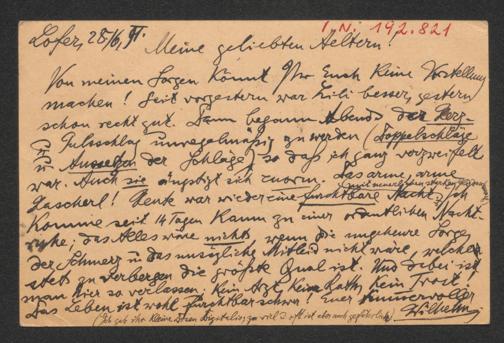 I. N. 192.821
Lofer, 25/6, 91.
Meine geliebten Aeltern!
Von meinen Sorgen könnt Ihr Euch keine Vorstellung
machen! Seit vorgestern war Lili besser, gestern
schon recht gut. Dann begann Abends der Herz-
u Pulsschlag unregelmäßig zu werden (Doppelschläge
u Aussetzen der Schläge) so daß ich ganz verzweifelt
war. Auch sie ängstigt sich enorm, das arme, arme
Hascherl! Heute war wieder eine furchtbare Nacht, Ich
mit neuerlichem starken
komme seit 14 Tagen kaum zu einer ordentlichen Nacht-
ruhe; das Alles wäre nichts, wenn die ungeheure Sorge,
der Schmerz u das unsägliche Mitleid nicht wäre, welches
stets zu verbergen die größte Qual ist. Und dabei ist
man hier so verlassen; Kein Arzt, kein Rath, kein Trost,
Das Leben ist wohl furchtbar schwer! Euer kummervoller
Wilhelm
(Ich geb ihr kleine Dosen Digitalis; zu viel u oft ist aber auch gefährlich)